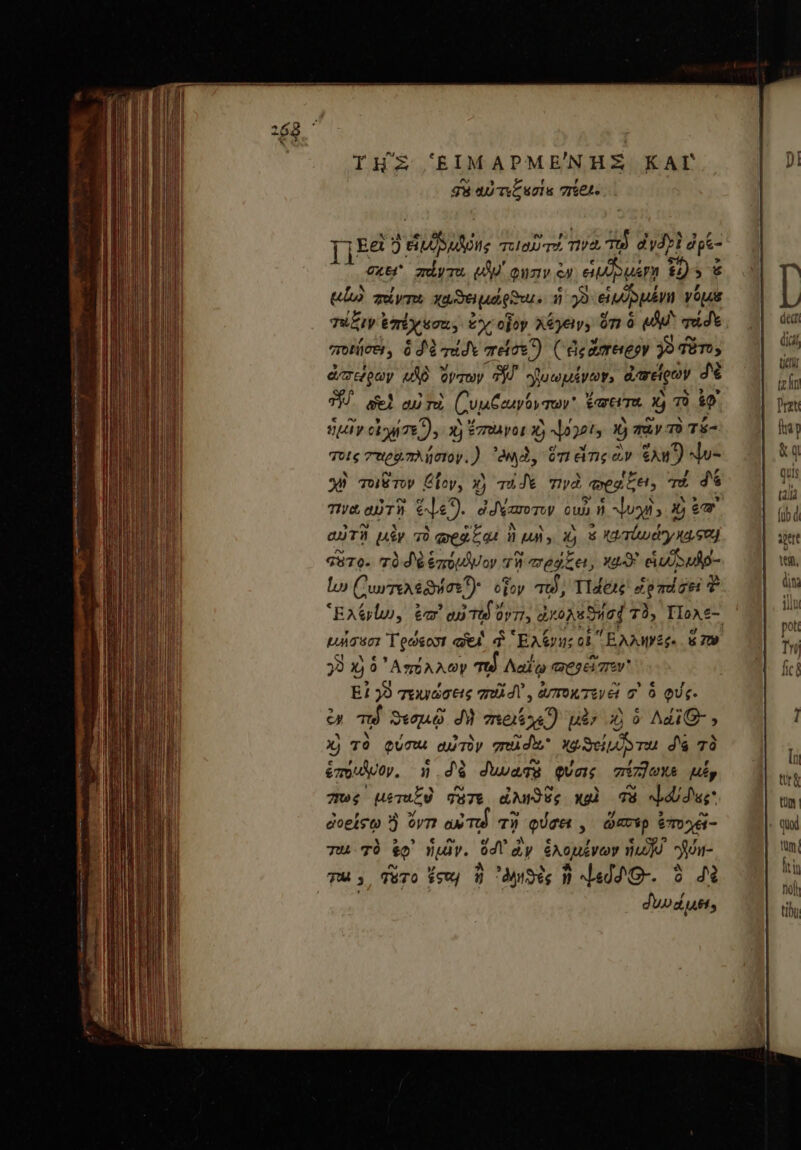 268
ΤΗ῀Σ ἙΙΜΑΡΜΕ´ΝΗΣ ΚΑΙ`
τοῦ αὐτεξουσίου περι.
ΠΕρὶ δὲ εἱμαρμένης τοιαῦτά τινα τῷ ἀνδρὶ ἀρέ-
σκει· πάντα μὲν φησιν ἐν εἱμαρμένῃ εἶναι, οὐ
μὴν πάντα καθειμάρθαι. ἡ γὰρ εἱμαρμένη νόμου
τάξιν ἐπέχουσα, οὐχ οἷον λέγειν, ὅτι ὁ μὲν τάδε
ποιήσει, ὁ δὲ τάδε πείσεται (εἰς ἄπειρον γὰρ τοῦτο,
ἀπείρων μὲν ὄντων τῶν γενωμένων, ἀπείρων δὲ
τῶν περὶ αὐτὰ συμβαινόντων· ἔπειτα καὶ τὸ ἐφ'
ἡμῖν οἰχήσεται, καὶ ἔπαινοι καὶ ψόγοι, καὶ πᾶν τὸ τού-
τοις παραπλήσιον.) ἀλλὰ, ὅτι εἴτις ἂν ἕληται ψυ-
χὴ τοιοῦτον βίον, καὶ τάδε τινὰ πράξει, τὰ δέ
τινα αὐτῇ ἕψεται. ἀδέσποτον οὖν ἡ ψυχὴ, καὶ ἐπ'
αὐτῇ μὲν τὸ πρᾶξαι ἢ μὴ, καὶ οὐ κατηνάγκασται
τοῦτο. τὸ δὲ ἑπόμενον τῇ πράξει, καθ' εἱμαρμέ-
νην συντελεσθήσεται· οἷον τῷ, Πάρις ἁρπάσει τὴν
Ἑλένην, ἐπ' αὐτῷ ὄντι, ἀκολουθήσει τὸ, Πολε-
μήσουσι Τρώεσσι περὶ τῆς Ἑλένης οἱ Ἕλληνές. οὕτω
γὰρ καὶ ὁ Ἀπόλλων τῷ Λαΐῳ προεῖπεν·
Εἰ γὰρ τεκνώσεις παῖδ', ἀποκτενεῖ σ' ὁ φύς.
ἐν τῷ θεσμῷ δὴ περιέχεται μὲν καὶ ὁ Λάϊος,
καὶ τὸ φῦσαι αὐτὸν παῖδα· καθείμαρται δὲ τὸ
ἑπόμενον. ἡ δὲ δυνατοῦ φύσις πέπτωκε μέν
πως μεταξὺ τοῦτε ἀληθοῦς καὶ τοῦ ψεύδους·
ἀορίστῳ δὲ ὄντι αὐτῷ τῇ φύσει, ὥσπερ ἐποχεῖ-
ται τὸ ἐφ' ἡμῖν. ὃ δ' ἂν ἑλομένων ἡμῶν γένη-
ται, τοῦτο ἔσται ἢ ἀληθὲς ἢ ψεῦδος. ὃ δὲ
δυνάμει,